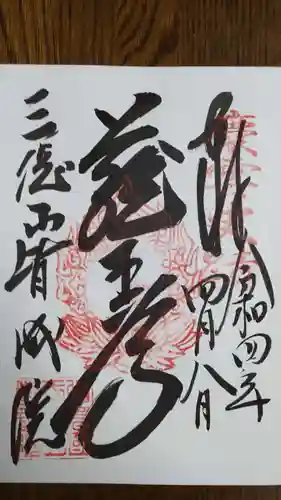 奉拝
令和四年
四月八日
蔵王殿
三徳山皆成院